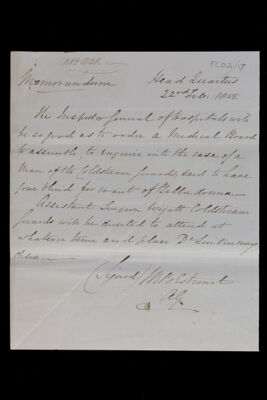 FC02/7
Memorandum
Head Quarters
22nd Feb. 1855.
The Inspector General of Hospitals will
be so good as to order a Medical Board
to assemble, to enquire into the case of a
Man of the Coldstream Guards, said to have
gone blind for want of Belladonna.
Assistant Surgeon Wyatt Coldstream
Guards will be directed to attend at
whatever time and place Dr
(Signed)
AG